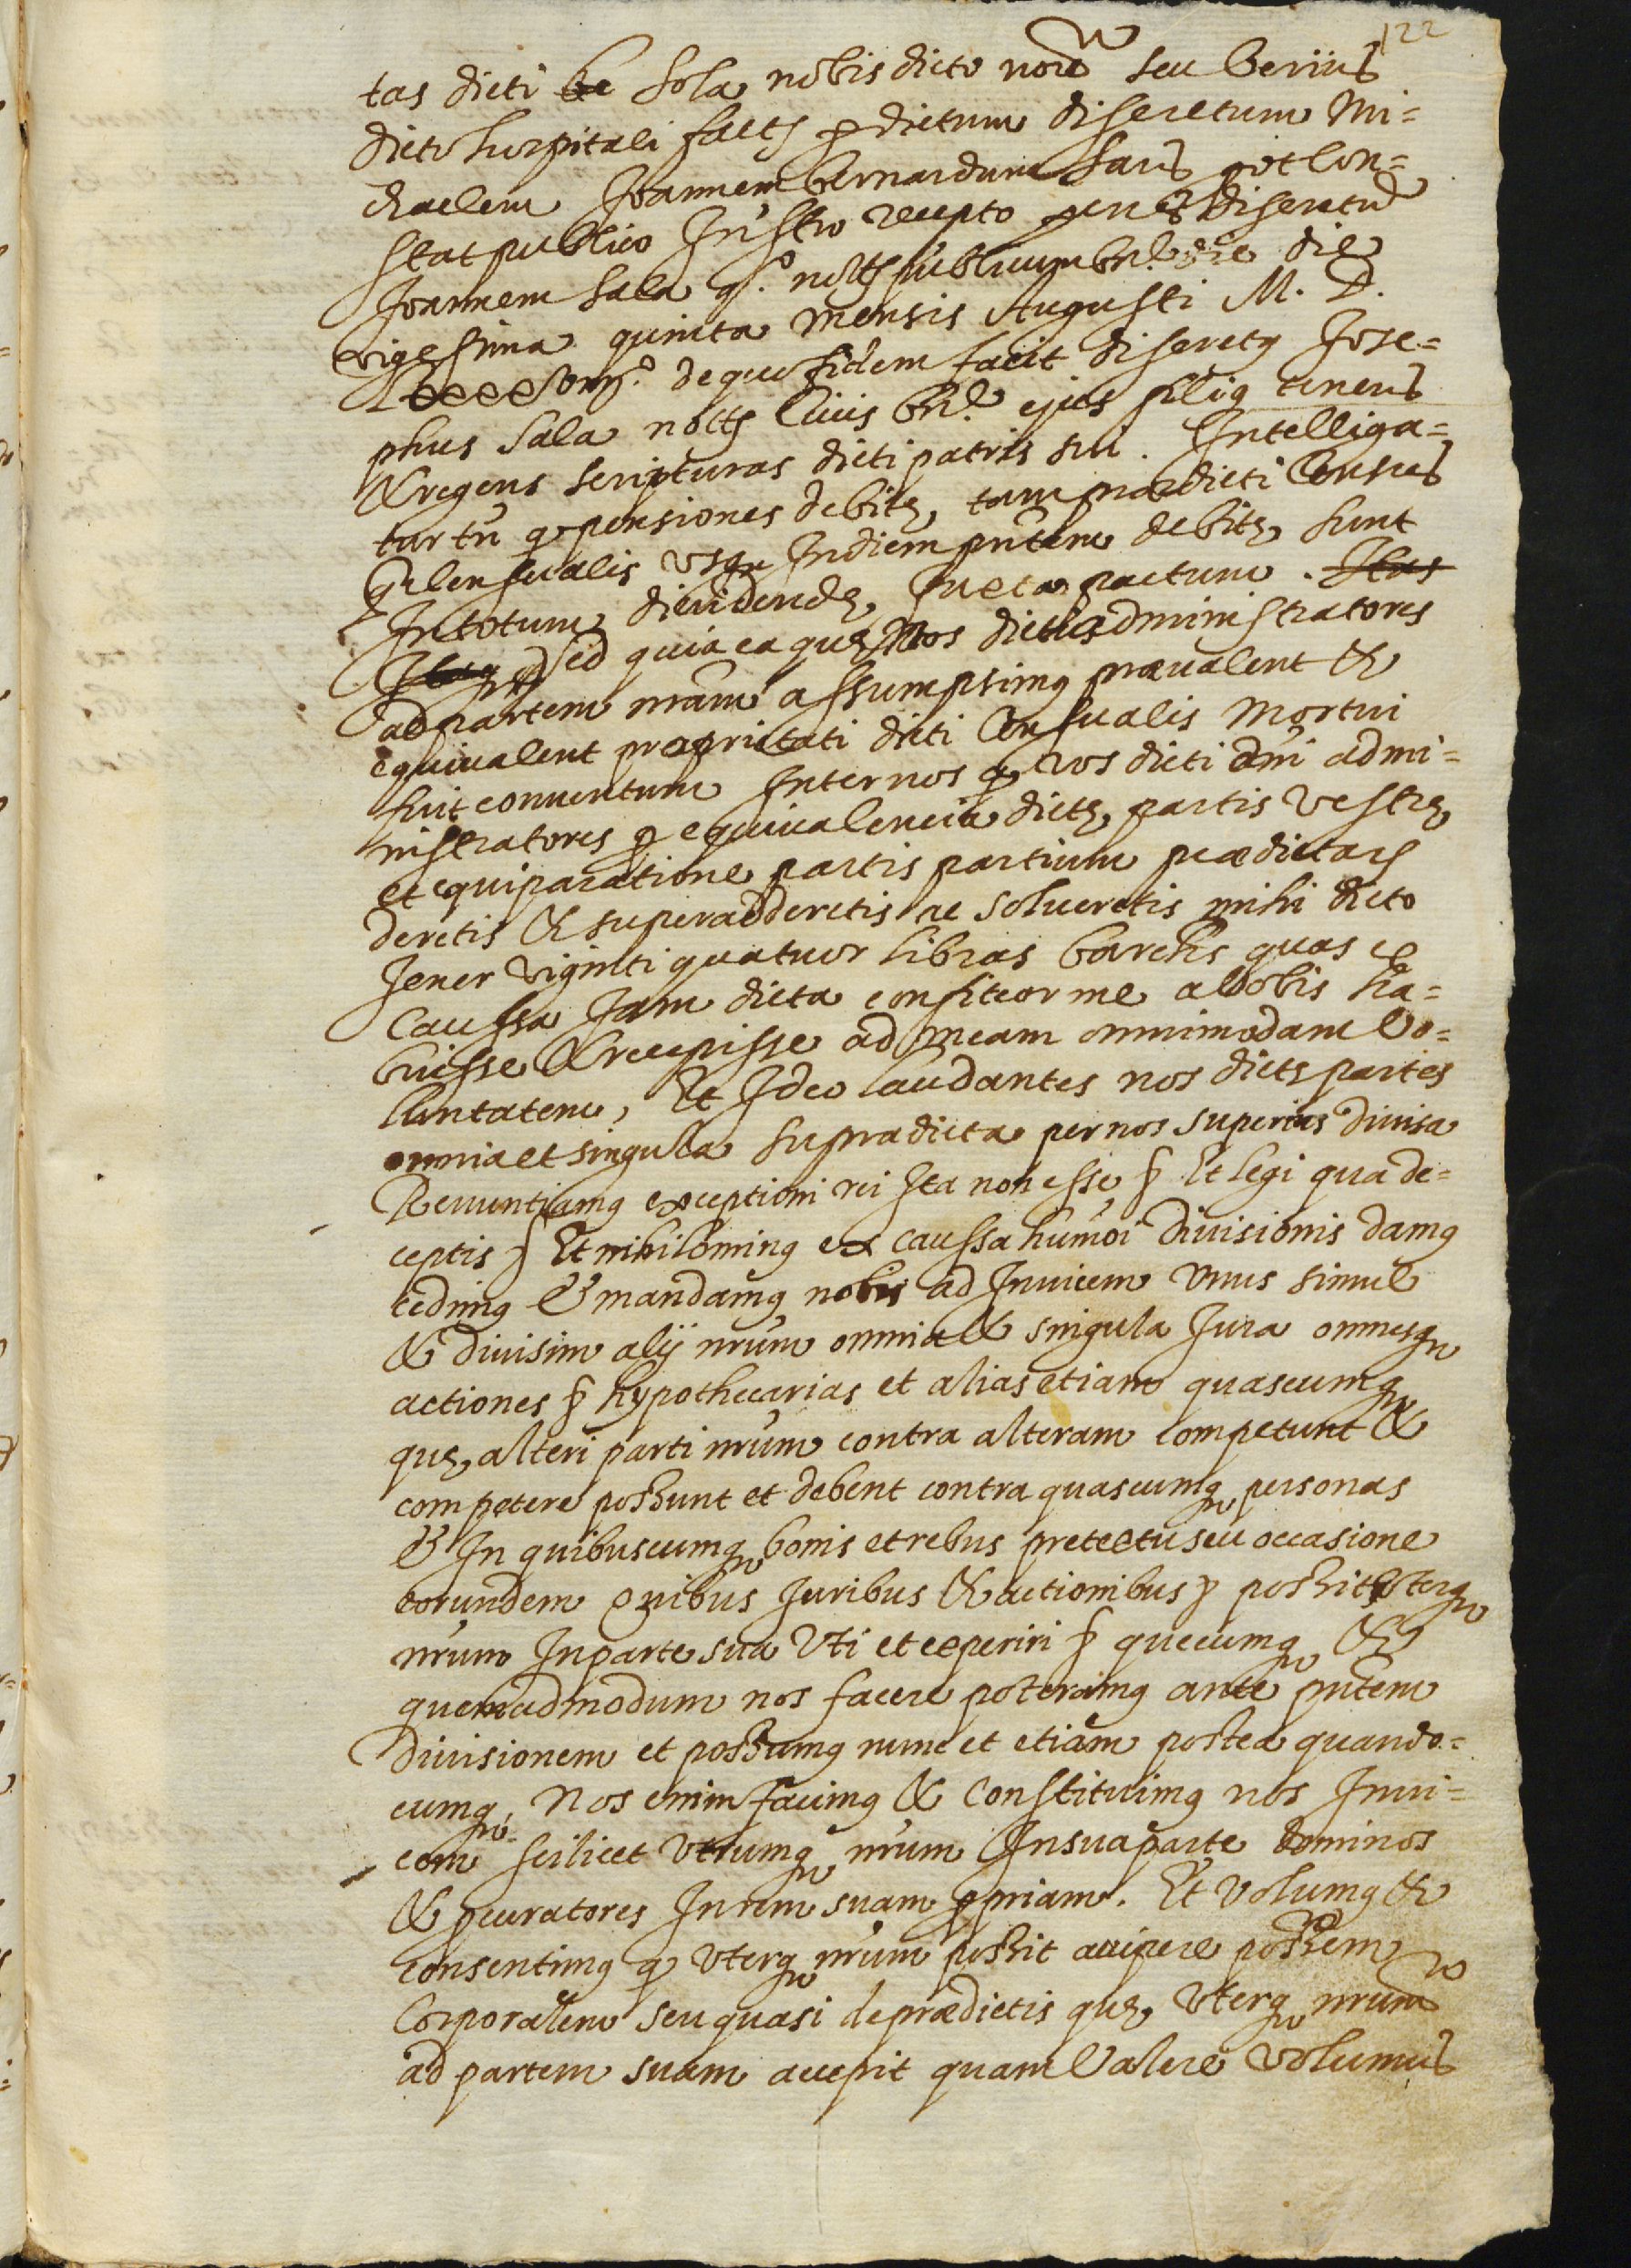 122
tas dicti be sola nobis dicto noīe seu verius
dicto hospitali factȩ p dictum discretum Mi=
chaelem Joannem bernardum Saris
stat publico Instro recepto penes discretū
Joannem Sala qº. nottȩ publicum die
vigesima quinta mensis Augusti M. D.
de quo fidem facit discretq Jose=
phus Sala nottȩ Ciuis ejus filiq tenens
& regens scripturas dicti patris sui. Intelliga=
tur tn̄ q pensiones debitȩ, tam prædicti Census
q̄ censualis vsqȝ In diem pn̄tem debitȩ, sunt
In totum diuidendȩ, Juxta pactum. Itas
Itaq Sed quia ea quȩ Nos dicti administratores
ad partem nr̄am assumpsimq præualent &
equiualent proprietati dicti Censualis mortui
fuit conuentum Inter nos q vos dicti dn̄i admi=
nistratores p equiualencia dictȩ, partis vestrȩ,
et equiparatione partis partium prædictarȝ
deretis & superadderetis ac solueretis mihi dicto
Jener viginti quatuor libras barchs quas ex
caussa Jam dicta confiteor me a vobis ha=
buisse & recepisse ad meam omnimodam vo=
luntatem, Et Ideo laudantes nos dictȩ partes
omnia et singula supradicta per nos superius diuisa
Renuntiamq exceptioni rei Ita non esse ꝭ Et legi qua de=
ceptis ꝭ Et nihilominq ex caussa humōi diuisionis damq
cedimq & mandamq nobis ad Inuicem vnus simul
& diuisim alij nr̄um omnia & singula Jura omnesqȝ
actiones ꝭ hypothecarias et alias etiam quascumqȝ
quȩ, alteri parti nr̄um contra alteram competunt &
competere possunt et debent contra quascumqȝ personas
& In quibuscumqȝ bonis et rebus pretextu seu occasione
eorundem Quibus Juribus & actionibus ꝭ possit vterqȝ
nr̄um In parte sua Vti et experiri ꝭ quecumqȝ &
quemadmodum nos facere poteramq ante pn̄tem
diuisionem et possumq nunc et etiam postea quando=
cumqȝ, Nos enim facimq & constituimq nos Inui=
cem scilicet vtrumqȝ nr̄um In sua parte dominos
& pcuratores In rem suam ppriam. Et volumq &
consentimq q vterqȝ nr̄um possit accipere possem
Corporalem seu quasi de prædictis quȩ, vterqȝ nr̄um
ad partem suam accepit quam Valere volumus